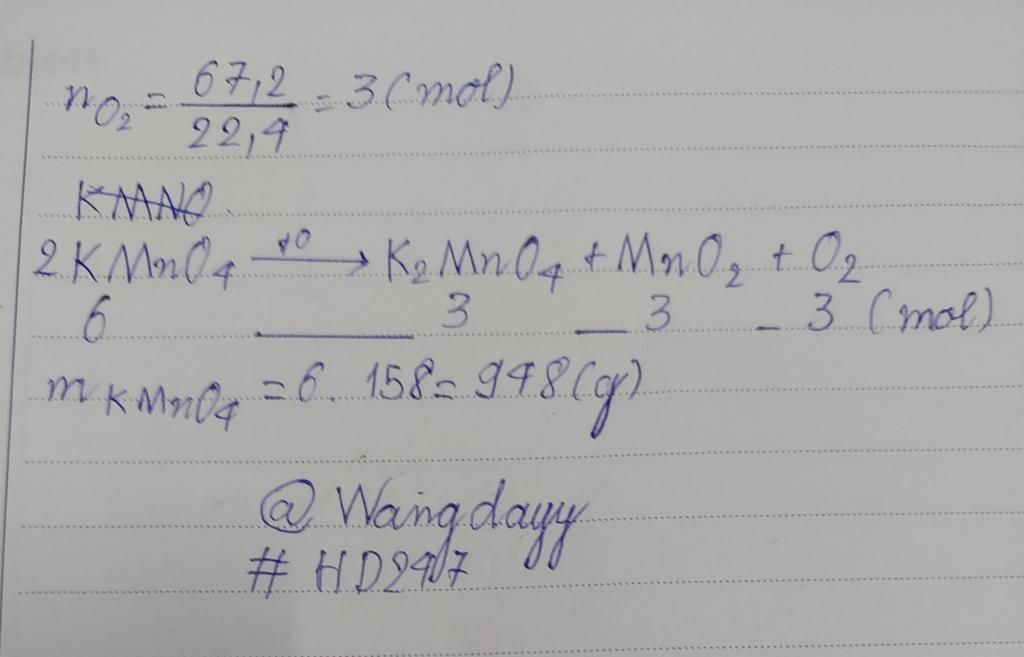 nO₂ = 67,2 / 22,4 = 3 (mol)
KMNO
2KMnO₄ —t⁰→ K₂MnO₄ + MnO₂ + O₂
6 ___ 3 _ 3 _ 3 (mol)
mKMnO₄ = 6. 158 = 948 (g)
@ Wangdayy
# HD247